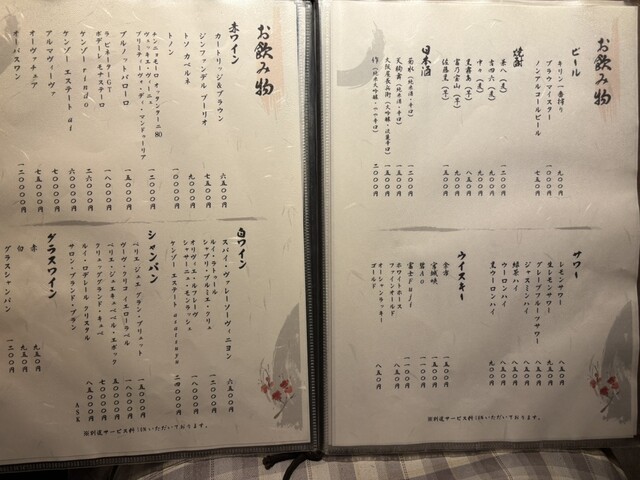 お飲み物
ビール
キリン一番搾り 九〇〇円
ブラウマイスター 一一〇〇円
ノンアルコールビール 七五〇円
焼酎
茶八(麦) 一二〇〇円
吉四六(麦)
中々(麦) 九〇〇円
黒霧島(芋) 八五〇円
富乃宝山(芋) 九五〇円
佐藤黒(芋) 一一〇〇円
日本酒
菊水(純米酒・辛口) 一二〇〇円
天狗舞(純米酒・辛口)
作(純米大吟醸・中辛口) 二〇〇〇円
サワー
レモンサワー 八五〇円
生レモンサワー 九五〇円
グレープフルーツサワー 八五〇円
ジャスミンハイ 八五〇円
緑茶ハイ 八五〇円
ウーロンハイ 八五〇円
黒ウーロンハイ 九〇〇円
ウイスキー
余市 一五〇〇円
宮城峡 一五〇〇円
碧Ao 一一〇〇円
富士Fuji 一一〇〇円
ホワイトホース
ファインオールド
オーシャンラッキー
ゴールド 八五〇円
※別途サービス料10%いただいております。
お飲み物
赤ワイン
カートリッジ&ブラウン 六五〇〇円
ジンファンデル ブーリオ 七五〇〇円
トソ カベルネ 九〇〇〇円
トノン
チンニャモーロ オッタンターニ80 一二〇〇〇円
ヴェッキエ・ヴィーニェ
プリミティーヴォ・ディ・マンドゥーリア
ブルノットバローロ 一五〇〇〇円
ラピネーターGT 一八〇〇〇円
ボデガ・レモナステーロ 二六〇〇〇円
ケンゾー rindo
ケンゾー エステート ai
アルマヴィーヴァ
オーヴァチュア 七五〇〇〇円
オーパスワン 一二〇〇〇〇円
白ワイン
スパイ・ヴァレーソーヴィニヨン 六五〇〇円
ルイ・ラトゥール
シャブリ・プルミエ・クリュ 一二〇〇〇円
オリヴィエ・ルフレーヴ
シャサーニュ・モンラッシェ 一八〇〇〇円
ケンゾー エステート asatsuyu 二四〇〇〇円
シャンパン
ペリエ ジュエ グラン・ブリュット 一五〇〇〇円
ヴーヴ・クリコ イエローラベル 一八〇〇〇円
ペリエ・ジュエ・ベル・エポック 五〇〇〇〇円
クリュッグ グランド・キュベ 七〇〇〇〇円
ルイ・ロデレール クリスタル 八五〇〇〇円
サロン・ブラン・ド・ブラン ASK
グラスワイン
赤 九五〇円
白 九五〇円
グラスシャンパン 一二〇〇円
※別途サービス料10%いただいております。